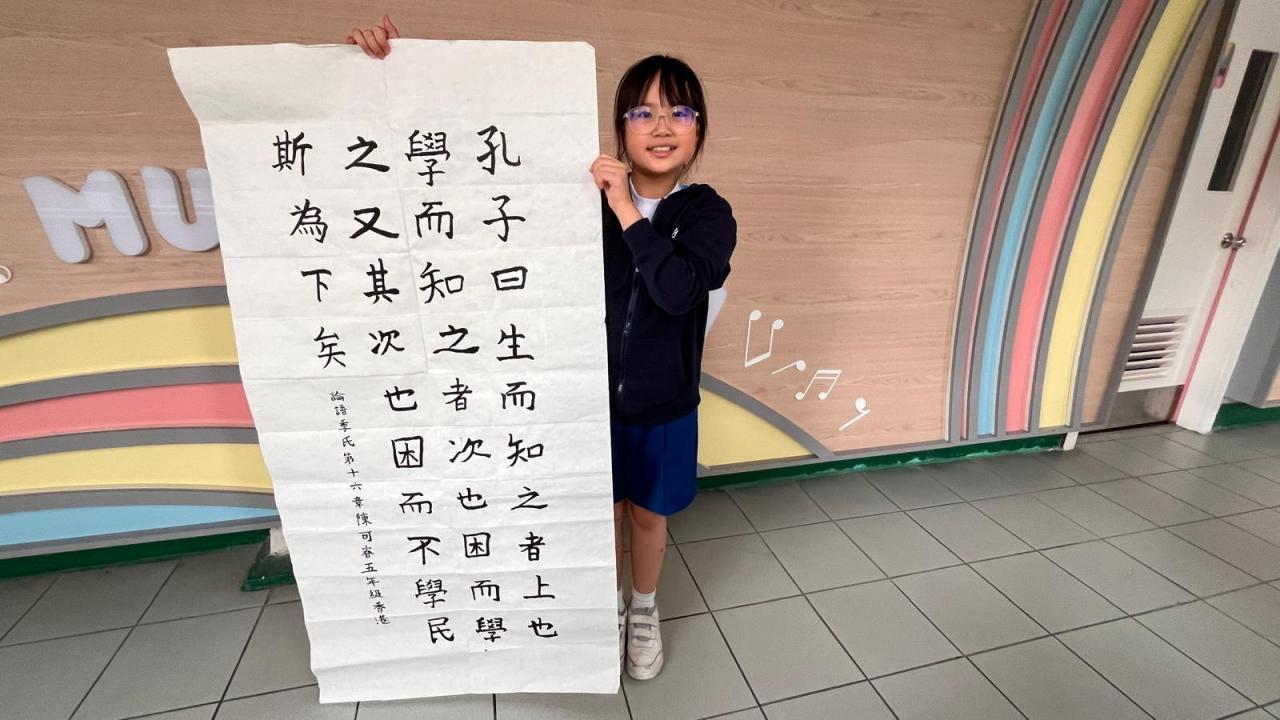 孔子曰生而知之者上也
學而知之者次也困而學
之又其次也困而不學民
斯為下矣
論語季氏第十六章陳可睿五年級香港
MU